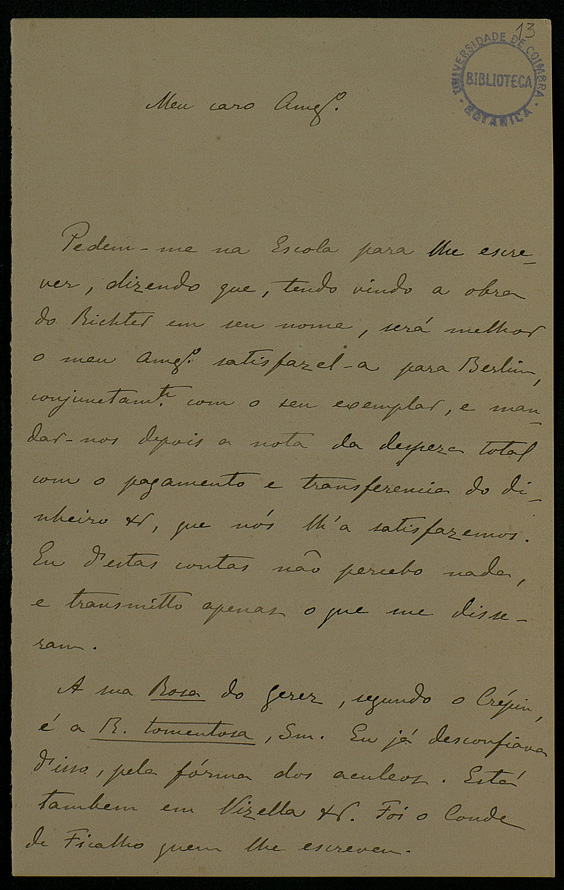 13
UNIVERSIDADE DE COIMBRA
BIBLIOTECA
BOTANICA
Meu caro Amgº.
Pedem-me na Escola para lhe escre-
ver, dizendo que, tendo vindo a obra
do Richter em seu nome, será melhor
o meu Amgº. satisfazel-a para Berlin,
conjunctamte. com o seu exemplar, e man-
dar-nos depois a nota da despeza total
com o pagamento e transferencia do di-
nheiro &r, que nós lh'a satisfazemos.
Eu d'estas contas não percebo nada,
e transmitto apenas o que me disse-
ram.
A sua Rosa do Gerez, segundo o Crépin,
é a R. tomentosa, Sm. Eu já desconfiava
d'isso, pela fórma dos aculeos. Está
tambem em Vizella &r. Foi o Conde
de Ficalho quem lhe escreveu.